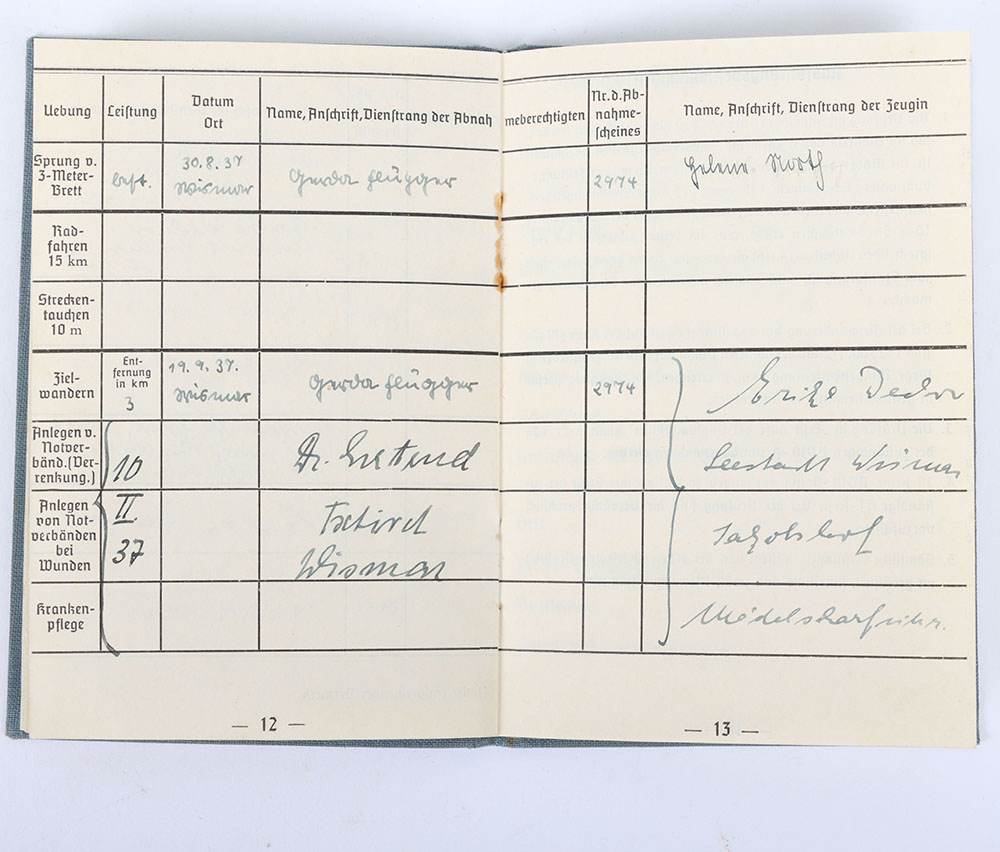 Uebung
Leistung
Datum
Ort
Name, Anschrift, Dienstrang der Abnah
meberechtigten
Nr. d. Ab-
nahme-
scheines
Name, Anschrift, Dienstrang der Zeugin
Sprung v.
3-Meter-
Brett
30.8.37
Wismar
Gerda Flügger
2974
Helene
Rad-
fahren
15 km
Strecken-
tauchen
10 m
Ziel-
wandern
Ent-
fernung
in km
3
19.9.37.
Wismar
Gerda Flügger
2974
Anlegen v.
Notver-
bänd.(Ver-
renkung.)
10
Dr.
Seestadt Wismar
Anlegen
von Not-
verbänden
bei
Wunden
II.
37
Wismar
Kranken-
pflege
Mädelscharführ.
— 12 —
— 13 —